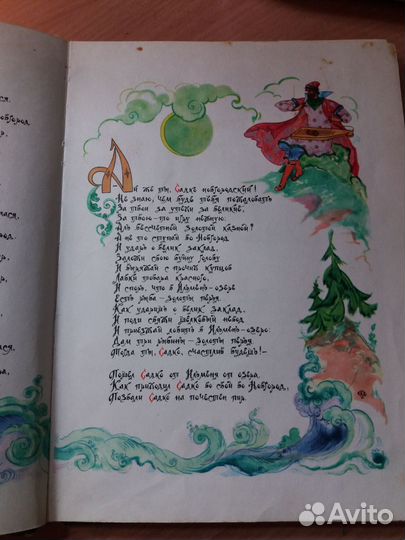 Ай же ты, Садке новгородский!
Не знаю, чем будь тебя пожаловать
За твои за утехи за великие,
За твою-то игру нежную:
Аль бессчетной золотой казной?
А не то ступай во Новгород
И ударь о велик заклад,
Заложи свою буйну голову
И выряжай с прочих купцов
Лавки товара красного,
И спорь, что в Ильмень-озере
Есть рыба - золоты перья.
Как ударишь о велик заклад,
И поди свяжи шелковый невод
И приезжай ловить в Ильмень-озеро:
Дам три рыбины - золоты перья.
Тогда ты, Садке, счастлив будешь!-
Пошел Садке от Ильменя от озера.
Как приходил Садке во свой во Новгород,
Позвали Садке на почестен пир.
Avito